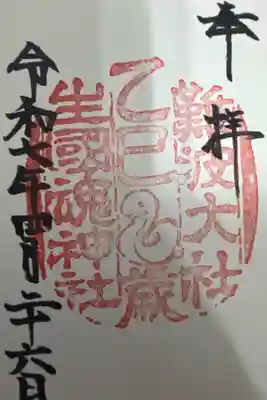 奉拝
難波大社
乙巳歳
生國魂神社
令和七年四月二十六日